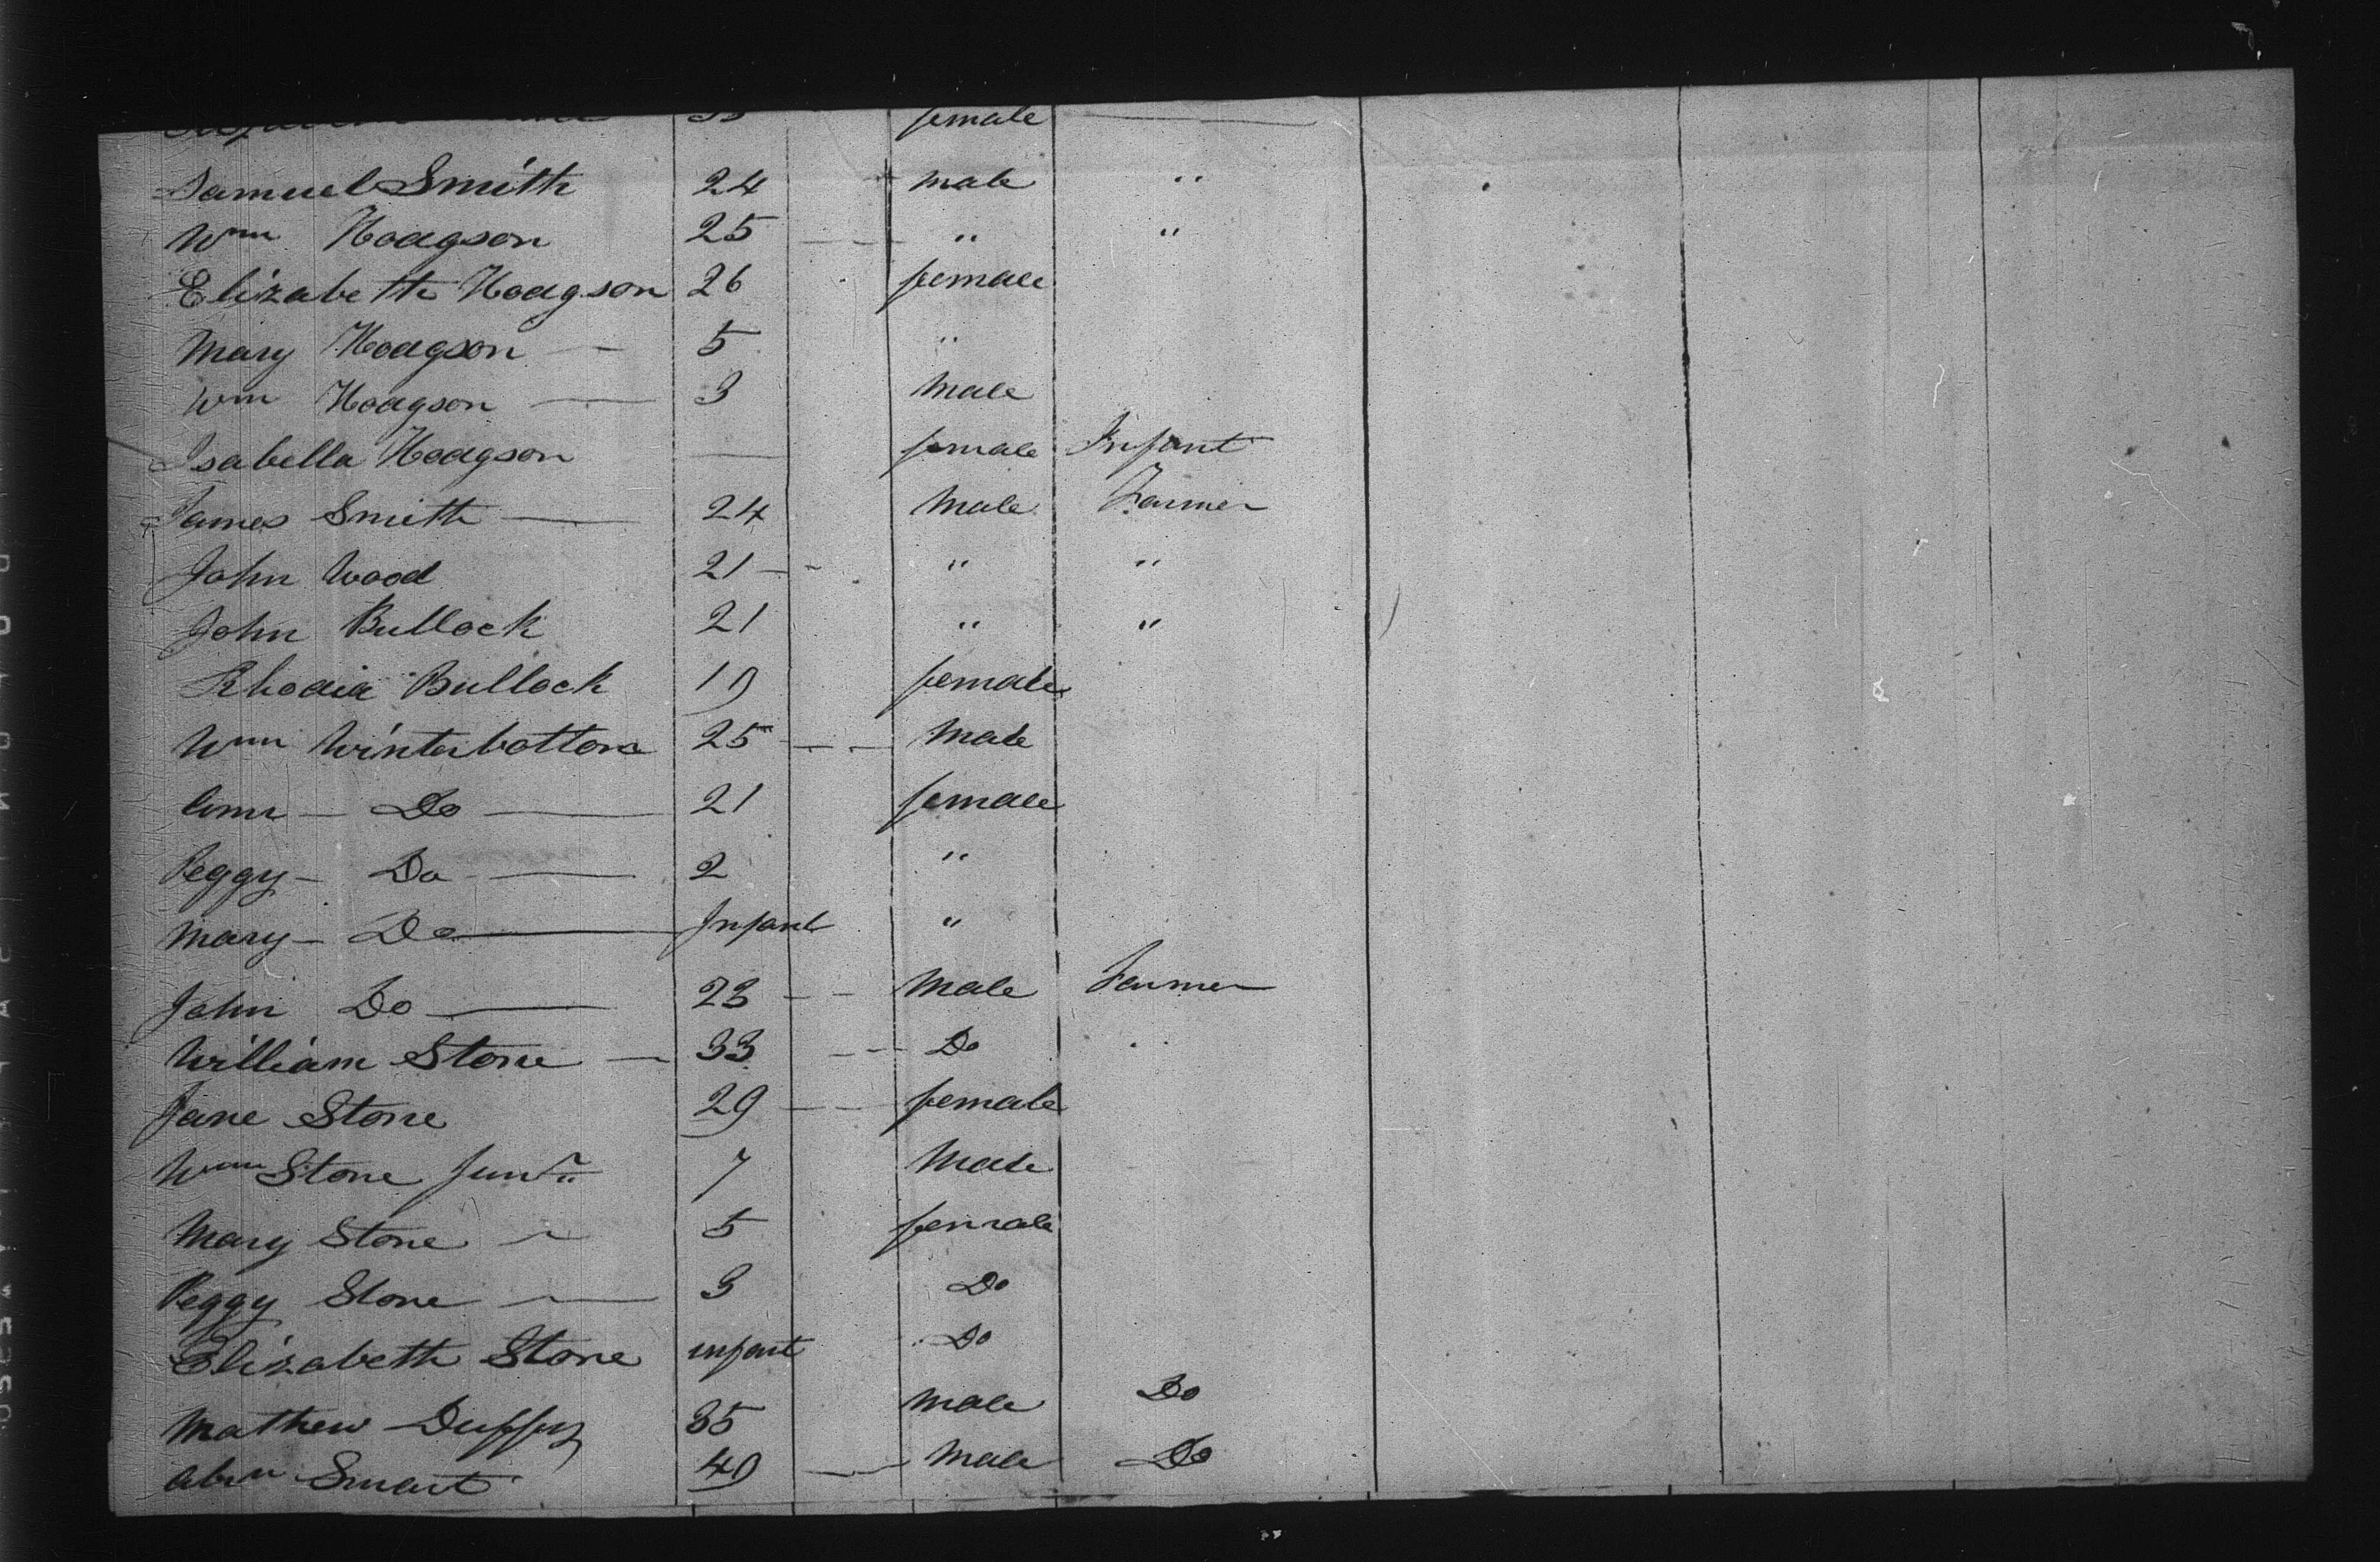 female
Samuel Smith 24 male "
Wm Hodgson 25 " "
Elizabeth Hodgson 26 female
Mary Hodgson 5 "
Wm Hodgson 3 Male
Isabella Hodgson female Infant
James Smith 24 Male Farmer
John Wood 21 " "
John Bullock 21 " "
Rhodia Bullock 19 female
Wm Winterbottom 25 Male
Ann Do 21 female
Peggy Do 2 "
Mary Do Infant "
John Do 23 Male Farmer
William Stone 33 Do "
Jane Stone 29 female
Wm Stone Junr 7 Male
Mary Stone 5 female
Peggy Stone 3 Do
Elizabeth Stone infant Do
Mathew Duffy 35 Male Do
Abm Smart 49 Male Do